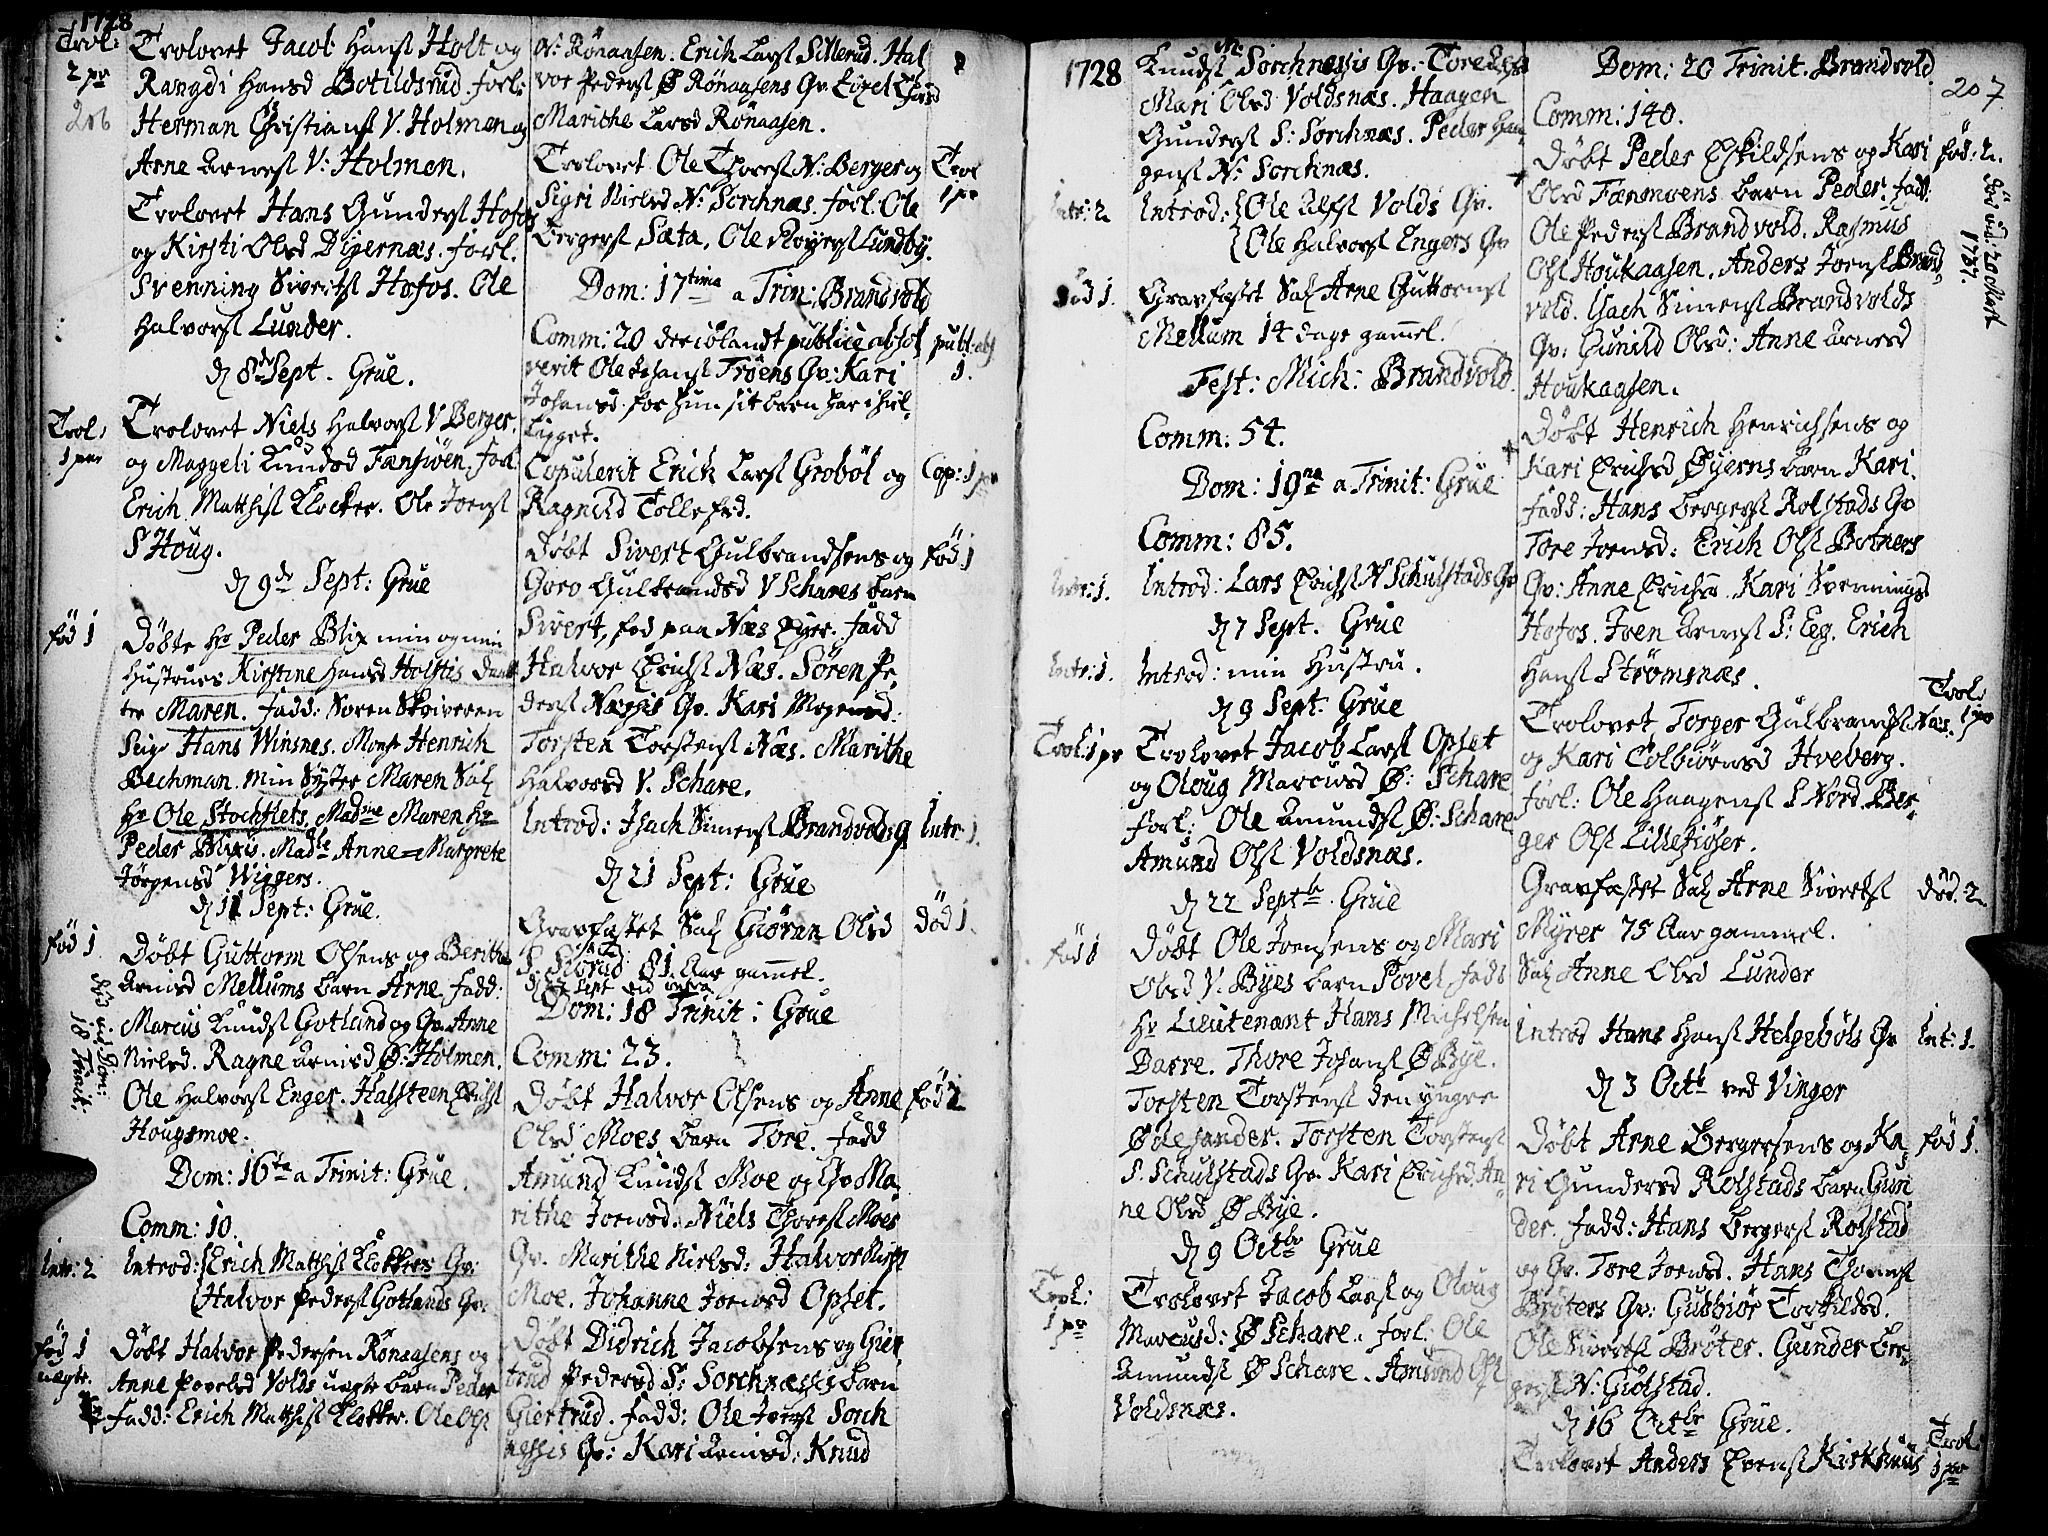 1728
Trol:
2 pr
206
Trolovet Jacob Hansſ Holt og
Rangdi Hansd Botildsrud. forl:
Herman Christiansſ V. Holmen og
Arne Arnesſ V: Holmen.
Trolovet Hans Gundersſ Hofos
og Kirsti Olsd Digernæs. forl.
Svenning Sivertsſ Hofos. Ole
Halvorsſ Lunder.
d 8de Sept. Grue.
Trol:
1 par
Trolovet Niels Halvorsſ V Berger.
og Maggeli Knudsd Fænsiøen, forl
Erich Matthisſ Klocker. Ole Joensſ
S Houg.
d 9de Sept: Grue
fød 1
Døbte Hr Peder Blix min og min
Hustrues Kirstine Hansd Holstis Daat
ter Maren. fadd: Soren Skriveren
Seigr Hans Winsnes. Monsr Henrich
Bechman. min Syster Maren Sal
Hr Ole Stochflets. Madme Maren Hr
Peder Blixis. Madle Anne=Margrete
Jørgensd Wiggers.
d 11 Sept: Grue.
fød 1
Døbt Guttorm Olsens og Berithe
Arnisd Mellums barn Arne. fadd:
Marcus Knudsſ Gotland og Qv. Anne
Nielsd. Ragne Arnisd Ø: Holmen.
Ole Halvorsſ Enger. Halsteen Erichsſ
Hougsmoe.
død vid Dom:
18 Trinit.
Dom: 16ta a Trinit: Grue.
Comm: 10.
Intr: 2
Introd: Erich Matthisſ Klockers Qv:
Halvor Pedersſ Gotlands Qv.
fød 1
uægte.
Døbt Halvor Pedersen Rønaasens og
Anne Povelsd Volds uægte barn Peder
fadd: Erich Matthisſ Klocker. Ole Olsſ
N: Rønaasen. Erich Larsſ Sillerud. Hal
vor Pedersſ Ø Rønaasens Qv. Lizel Thorsd
Marithe Larsd Rønaasen.
Trolovet Ole Thoresſ N: Berger og
Trol
1 pr
Sigri Nielsd N: Sorchnæs. forl: Ole
Bergersſ Sæta, Ole Røyersſ Lundby.
Dom: 17tima a Trin: Brandvold
Comm: 20 deriblandt publice absol
publ: abs
1.
verit Ole Johansſ Trøens Qv: Kari
Johansd for hun sit barn har ihiel
ligget.
Copulerit Erich Larsſ Grobøl og
Cop: 1 pr
Ragnild Tollefsd.
Døbt Sivert Gulbrandsens og
fød 1
Goro Gulbrandsd V Schares barn
Sivert, fød paa Næs Eyer. fadd
Halvor Erichsſ Næs. Søren Pe,
dersſ Næssis Qv. Kari Mogensd.
Torsten Torstensſ Næs. Marithe
Halvorsd V. Schare.
Introd: Isach Simensſ Brandvolds Q
Intr: 1.
d 21 Sept: Grue
Gravfæstet Sal Giøran Olsd
død 1.
S. Skørud 81 Aar gammel.
Dom: 18 Trinit: Grue
Comm: 23.
Døbt Halvor Olsens og Anne
fød 2
Olsd Moes barn Tore. fadd
Amund Knudsſ Moe og Qv. Ma,
rithe Joensd. Niels Thoresſ Moes
Qv. Marithe Nielsd: Halvor Nielsſ
Moe. Johanne Joensd Opset.
Døbt Didrich Jacobsens og Gier,
trud Pedersd S: Sorchnæssis barn
Giertrud. fadd: Ole Joensſ Sorch
nessis Qv: Kari Arnisd: Knud
1728
Knudsſ N: Sorchnæssis Qv. Tore Olsd
Mari Olsd Voldsnæs. Haagen
Gundersſ S: Sorchnæs. Peder Haa,
gensſ N: Sorchnæs.
Intr: 2
Introd: Ole Alfsſ Volds Qv.
Ole Halvorsſ Engers Qv
død 1.
Gravfæstet Sal Arne Guttormsſ
Mellum 14 dage gammel.
Fest: Mich: Brandvold.
Comm: 54.
Dom: 19na a Trinit: Grue
Comm: 85.
Intr: 1.
Introd: Lars Erichsſ N Schulstads Qv
d 7 Sept. Grue
Intr: 1.
Introd: min Hustru.
d 9 Sept. Grue
Trol: 1 pr
Trolovet Jacob Larsſ Opset
og Oloug Marcusd Ø: Schare
forl: Ole Amundsſ Ø: Schare
Amund Olsſ Voldsnæs.
d 22 Septb. Grue
fød 1
Døbt Ole Joensens og Mari
Olsd V: Byes barn Povel, fadd
Hr Lieutenant Hans Michelsen
Darre. Thore Johansſ Ø Bye.
Torsten Torstensſ den yngre
Ødesander. Torsten Torstensſ
S. Schulstads Qv. Kari Erichsd. An
ne Olsd Ø Bye.
d 9 Octbr Grue
Trol:
1 pr
Trolovet Jacob Larsſ og Oloug
Marcusd: Ø Schare. forl. Ole
Amundsſ Ø Schare. Amund Olsſ
Voldsnæs.
Dom: 20 Trinit. Brandvold
207
Comm: 140.
Døbt Peder Eskildsens og Kari
fød: 2.
Olsd Fænmoens barn Peder. fadd:
død vid: 20 Mart
1737.
Ole Pedersſ Brandvold. Rasmus
Olsſ Houkaasen. Anders Joensſ Brand
vold. Isach Simensſ Brandvolds
Qv: Gunild Olsd: Anne Arnesd
Houkaasen.
Døbt Henrich Henrichsens og
Kari Erichsd Øyerns barn Kari.
fadd: Hans Bergersſ Rolstads Qv
Tore Joensd: Erich Olsſ Botners
Qv: Anne Erichsd. Kari Svennings
Hofos. Joen Arnesſ S: Eeg. Erich
Hansſ Strømsnæs.
Trolovet Torger Gulbrandsſ Næs.
Trol:
1 pr
og Kari Colbiørnsd Hveberg.
forl: Ole Haagensſ S Nord. Ber,
ger Olsſ Lillesiøser.
Gravfæstet Sal Arne Sivertsſ
død. 2
Myrer 75 Aar gammel.
Sal Anne Olsd Lunder
Introd Hans Hansſ Helgebøls Qv
Int: 1.
d 3 Octb ved Vinger
Døbt Arne Bergersens og Ka,
fød 1.
ri Gundersd Rolstads barn Gun
der. fadd: Hans Bergersſ Rolstad
og Qv. Tore Joensd. Hans Thomesſ
Brøters Qv: Gubbiør Torkildsd.
Ole Sivertsſ Brøter. Gunder Ber,
gersſ N: Giølstad.
d 16 Octbr Grue.
Trolovet Anders Evensſ Kirkemus
Trol
1 pr